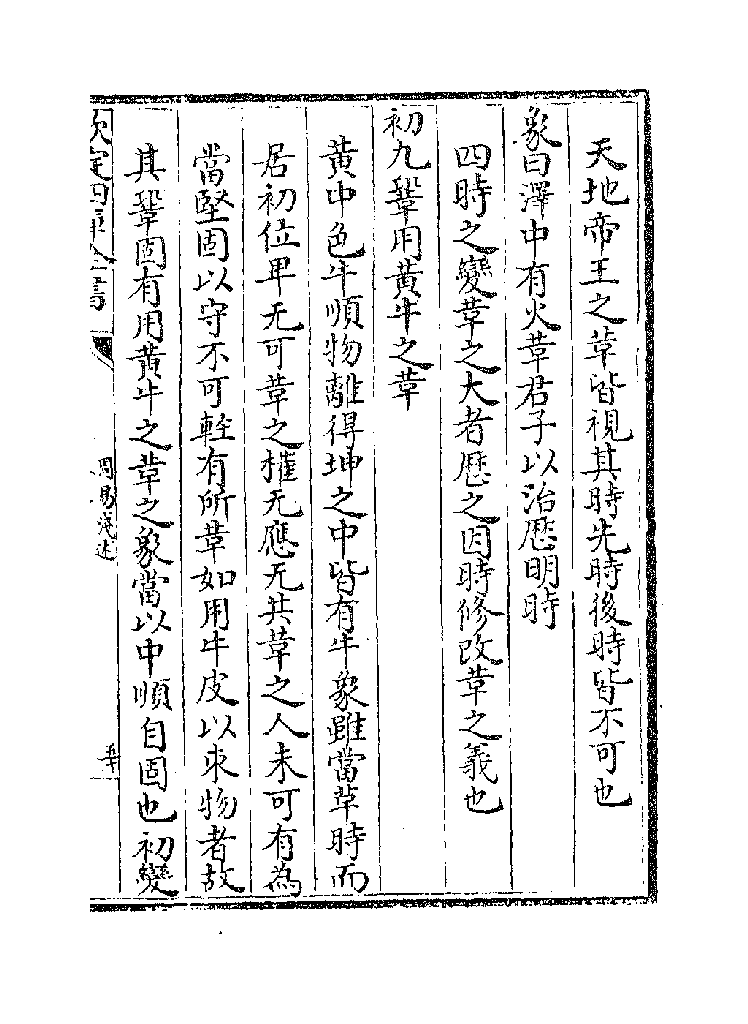 天地帝王之革皆視其時先時後時皆不可也
象曰澤中有火革君子以治歴明時
四時之變革之大者歴之因時修改革之義也
初九鞏用黄牛之革
黄中色牛順物離得坤之中皆有牛象雖當革時而
居初位卑无可革之權无應无共革之人未可有為
當堅固以守不可輕有所革如用牛皮以束物者故
其鞏固有用黄牛之革之象當以中順自固也初變
欽定四庫全書
周易淺述